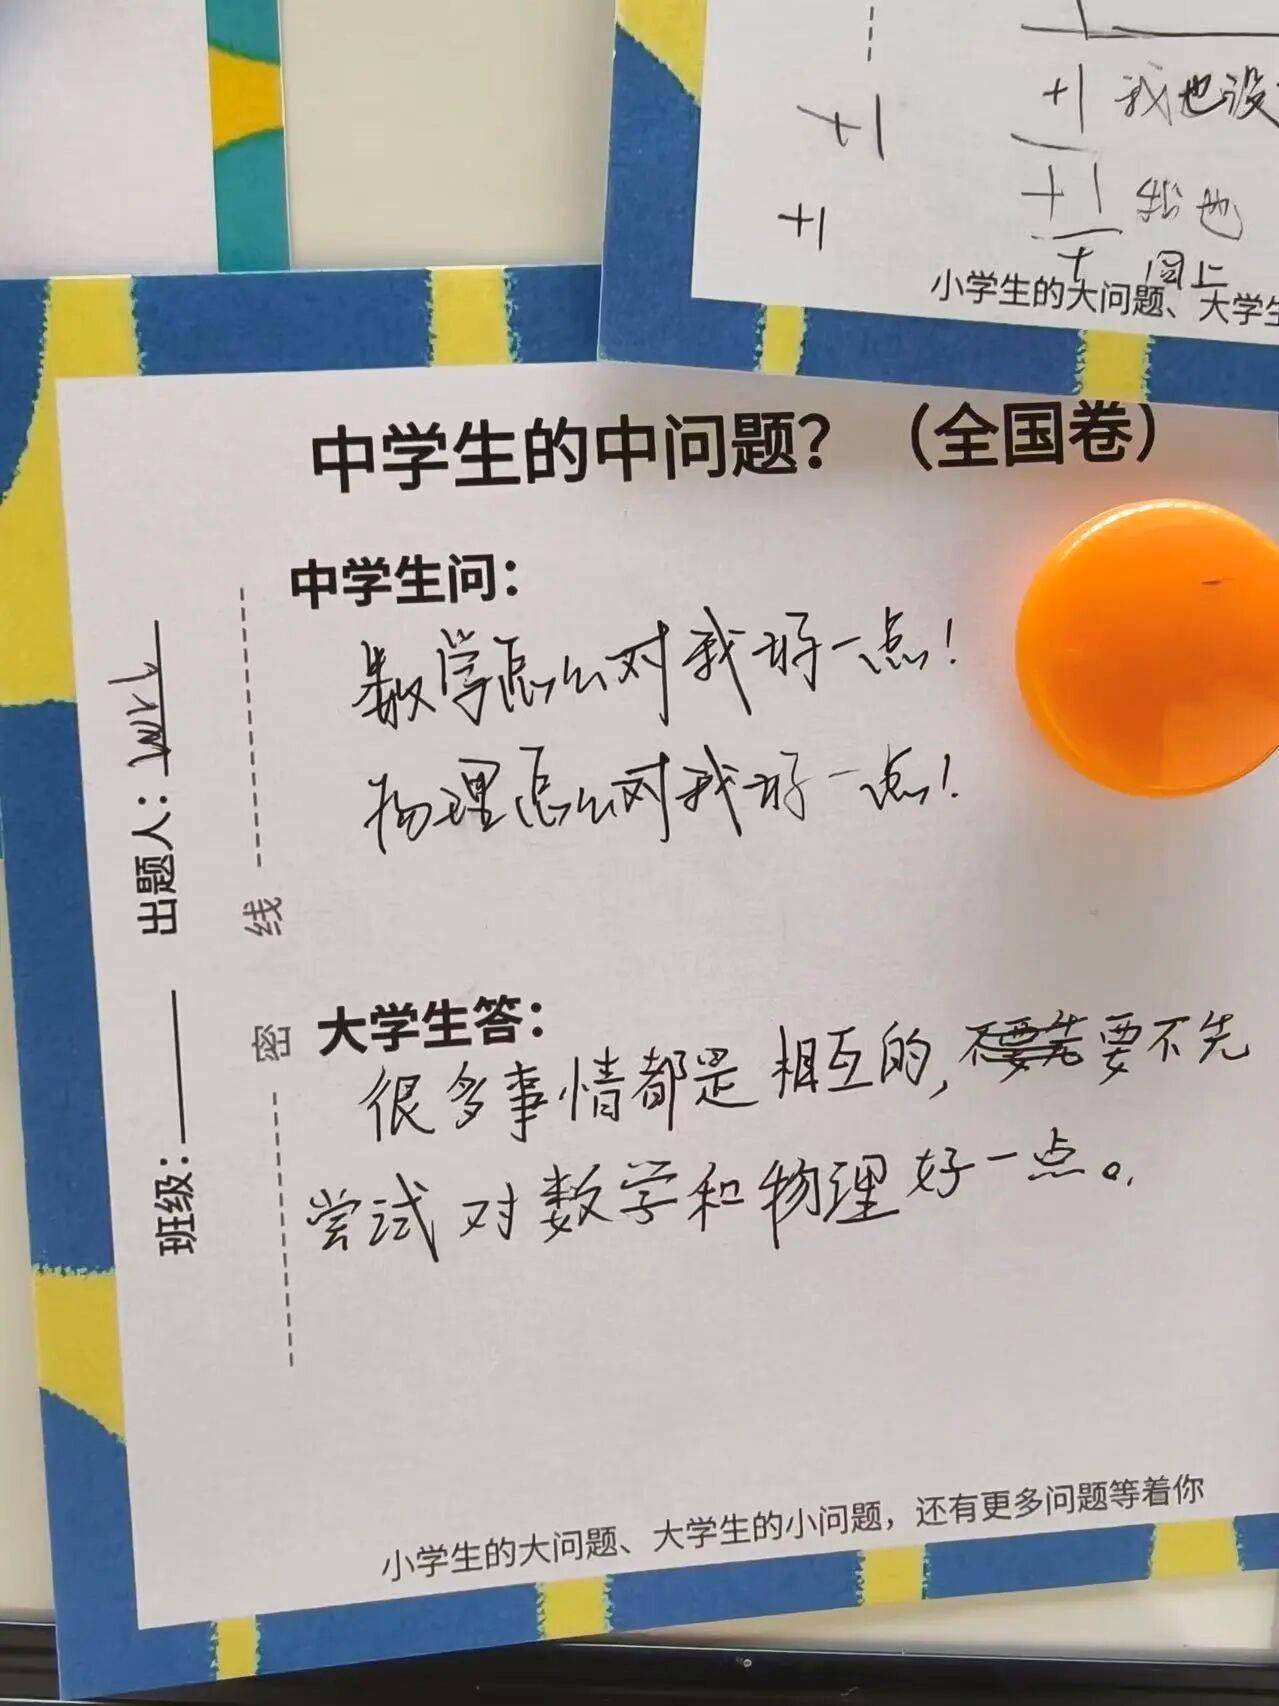 +1
+1
+1 我也没
+1 我也
+
同上
小学生的大问题、大学生
中学生的中问题？（全国卷）
中学生问：
数学怎么对我好一点！
物理怎么对我好一点！
出题人：
班级：
线
密
大学生答：
很多事情都是相互的，不要先要不先
尝试对数学和物理好一点。
小学生的大问题、大学生的小问题，还有更多问题等着你